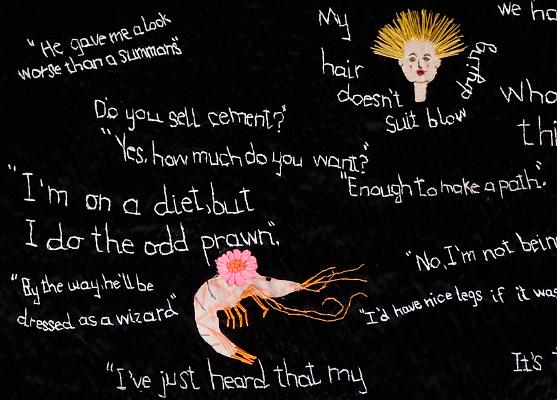 "He gave me a look
worse than a summans"
My
hair
doesn't
suit blow
drying
we ha
who
thi
Do you sell cement?"
"Yes, how much do you want?"
"Enough to make a path".
"I'm on a diet, but
I do the odd prawn".
"By the way, he'll be
dressed as a wizard"
"No, I'm not bein
"I'd have nice legs if it was
"I've just heard that my
It's